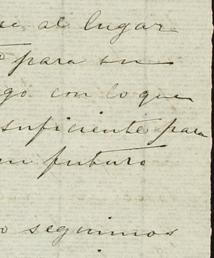 se al lugar
para su
go con lo que
suficiente para
un futuro
o seguimos